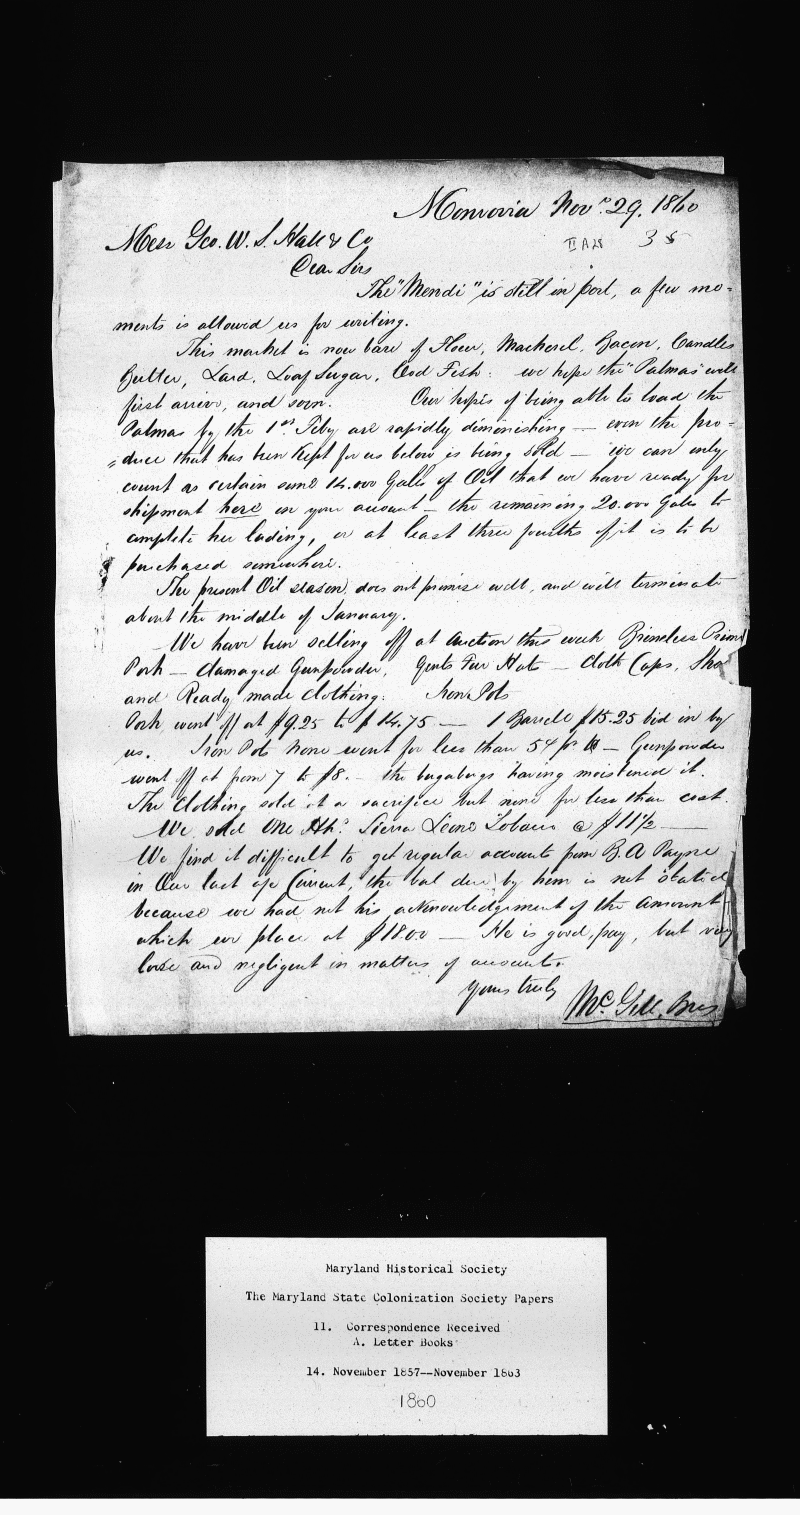 Monrovia Novr. 29. 1860
II A 28 38
Mess Geo. W. S. Hall & Co
Dear Sirs
The "Mendi" is still in port, a few mo-
ments is allowed us for writing.
This market is now bare of Flour, Mackerel, Bacon, Candles
Butter, Lard, Loaf Sugar, Cod Fish: we hope the "Palmas" will
first arrive, and soon. Our hopes of being able to load the
Palmas by the 1st Feby are rapidly diminishing — even the pro-
duce that has been kept for us below is being sold — we can only
count as certain some 14.000 Galls of Oil that we have ready for
shipment here on your account — the remaining 20.000 Galls to
complete her lading, or at least three fourths of it is to be
purchased somewhere.
The present Oil season does not promise well, and will terminate
about the middle of January.
We have been selling off at Auction this week Brineless Prime
Pork — damaged Gunpowder, Gents Fur Hats — Cloth Caps,
and Ready made clothing: Iron Pots
Pork went off at $9.25 to $14.75 — 1 Barrell $15.25 bid in by
us. Iron Pots none went for less than 5¢ pr lb — Gunpowder
went off at from 7 to $8. — the bugabugs having moistened it.
The Clothing sold at a sacrifice but none for less than cost.
We sold One Hhd. Sierra Leone Tobacco @ $11½ —
We find it difficult to get regular accounts from B. A Payne
in Our last a/c Current, the bal due by him is not stated
because we had not his acknowledgement of the amount
which we place at $1800 — He is good pay, but very
loose and negligent in matters of accounts.
Yours truly
McGill, Bros
Maryland Historical Society
The Maryland State Colonization Society Papers
11. Correspondence Received
A. Letter Books
14. November 1857--November 1863
1860